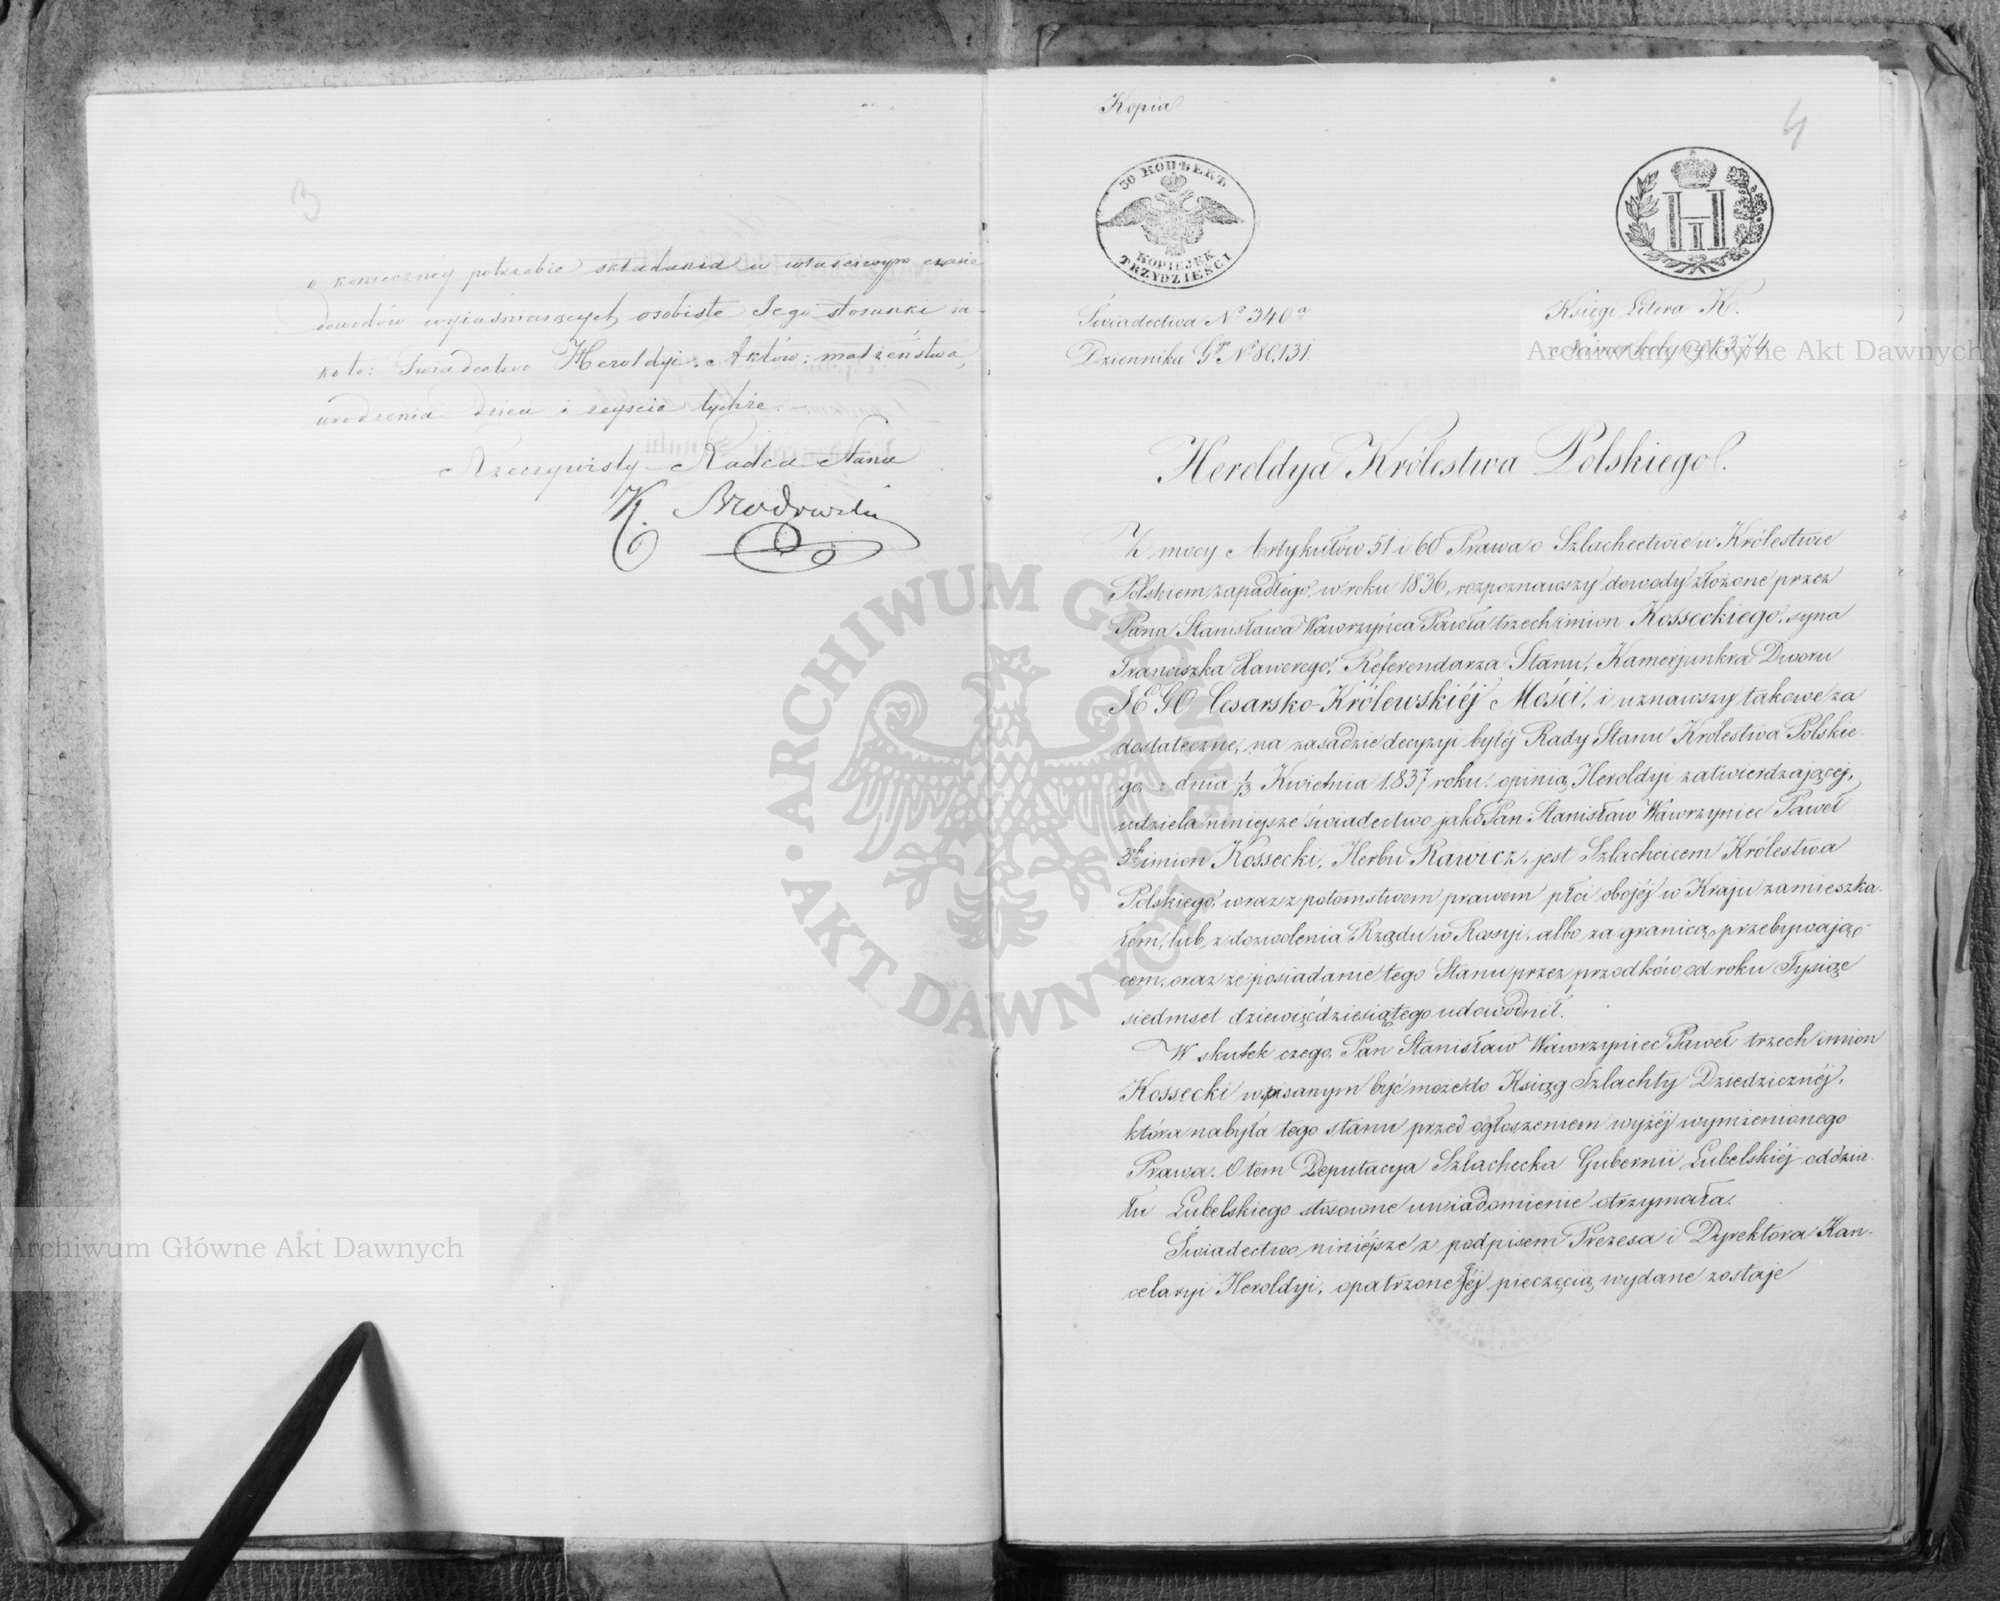 3
o konieczney potrzebie składania w właściwym czasie
dowodów wyiaśniaiących osobiste Jego stosunki ia-
ko to: Świadectwo Heroldyi, Aktów: małżeństwa,
urodzenia dzieci i zeyscia tychże.
Rzeczywisty Radca Stanu
K. Brodowski
Kopia
4
30 КОПѢЕКЪ
KOPIEJEK
TRZYDZIEŚCI
Świadectwa No 340a
Dziennika Gł. No 80,131.
Księgi Litera K.
Numer kolejny 1374
Heroldya Królestwa Polskiego.
Z mocy Artykułów 51 i 60 Prawa o Szlachectwie w Królestwie
Polskiem zapadłego w roku 1836, rozpoznawszy dowody złożone przez
Pana Stanisława Wawrzyńca Pawła trzech imion Kosseckiego, syna
Franciszka Xawerego, Referendarza Stanu, Kamerjunkra Dworu
JEGO Cesarsko-Królewskiéj Mości, i uznawszy takowe za
dostateczne, na zasadzie decyzyi byłéj Rady Stanu Królestwa Polskie-
go z dnia 1/13 Kwietnia 1837 roku opinią Heroldyi zatwierdzającéj,
udziela niniejsze świadectwo jako Pan Stanisław Wawrzyniec Paweł
3ch imion Kossecki, Herbu Rawicz, jest Szlachcicem Królestwa
Polskiego, wraz z potomstwem prawem płci obojéj w Kraju zamieszka-
łem, lub z dozwolenia Rządu w Rossyi, albo za granicą przebywają-
cem, oraz że posiadanie tego Stanu przez przodków od roku Tysiąc
siedmset dziewięćdziesiątego udowodnił.
W skutek czego, Pan Stanisław Wawrzyniec Paweł trzech imion
Kossecki wpisanym być może do Ksiąg Szlachty Dziedzicznéj,
która nabyła tego stanu przed ogłoszeniem wyżéj wymienionego
Prawa. O tem Deputacya Szlachecka Gubernii Lubelskiéj oddzia-
łu Lubelskiego stosowne uwiadomienie otrzymała.
Świadectwo niniejsze z podpisem Prezesa i Dyrektora Kan-
celaryi Heroldyi, opatrzone Jéj pieczęcią wydane zostaje
ARCHIWUM GŁÓWNE · AKT DAWNYCH ·
Archiwum Główne Akt Dawnych
Archiwum Główne Akt Dawnych